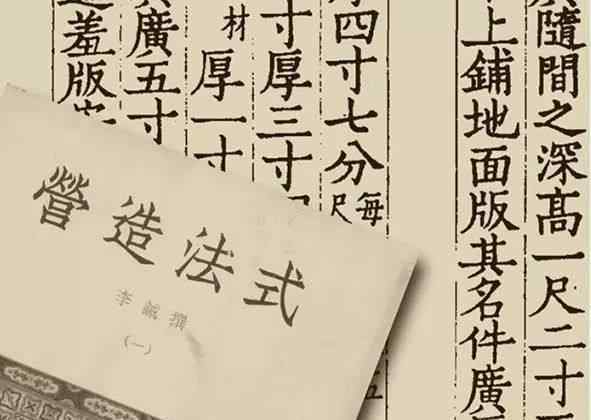 隨間之深高一尺二寸
上鋪地面版其名件廣
四寸七分每尺
寸厚三寸
材厚一寸
廣五寸
羞版
營造法式
李誡撰
(一)